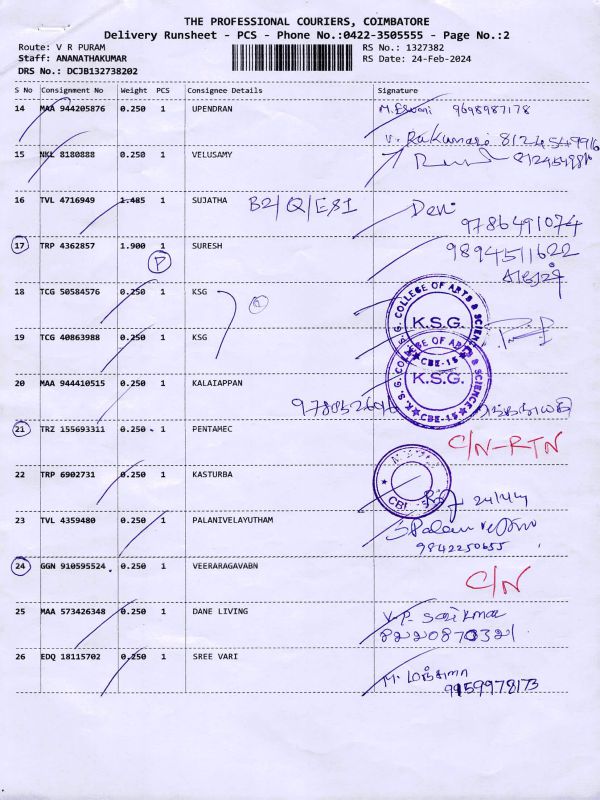 THE PROFESSIONAL COURIERS, COIMBATORE
Delivery Runsheet - PCS - Phone No.:0422-3505555 - Page No.:2
Route: V R PURAM
RS No.: 1327382
Staff: ANANATHAKUMAR
RS Date: 24-Feb-2024
DRS No.: DCJB132738202
S No Consignment No Weight PCS Consignee Details Signature
14 MAA 944205876 0.250 1 UPENDRAN 9698987178
15 NKL 8180888 0.250 1 VELUSAMY
16 TVL 4716949 1.485 1 SUJATHA B2/Q/E81 Devi
9786491074
17 TRP 4362857 1.900 1 SURESH 9894511622
P
18 TCG 50584576 0.250 1 KSG
K.S.G.
19 TCG 40863988 0.250 1 KSG
K.S.G.
CBE-15
20 MAA 944410515 0.250 1 KALAIAPPAN
21 TRZ 155693311 0.250 1 PENTAMEC C/N-RTN
22 TRP 6902731 0.250 1 KASTURBA
23 TVL 4359480 0.250 1 PALANIVELAYUTHAM
9842250655
24 GGN 910595524 0.250 1 VEERARAGAVABN C/N
25 MAA 573426348 0.250 1 DANE LIVING V.P.
26 EDQ 18115702 0.250 1 SREE VARI M.
9159978173